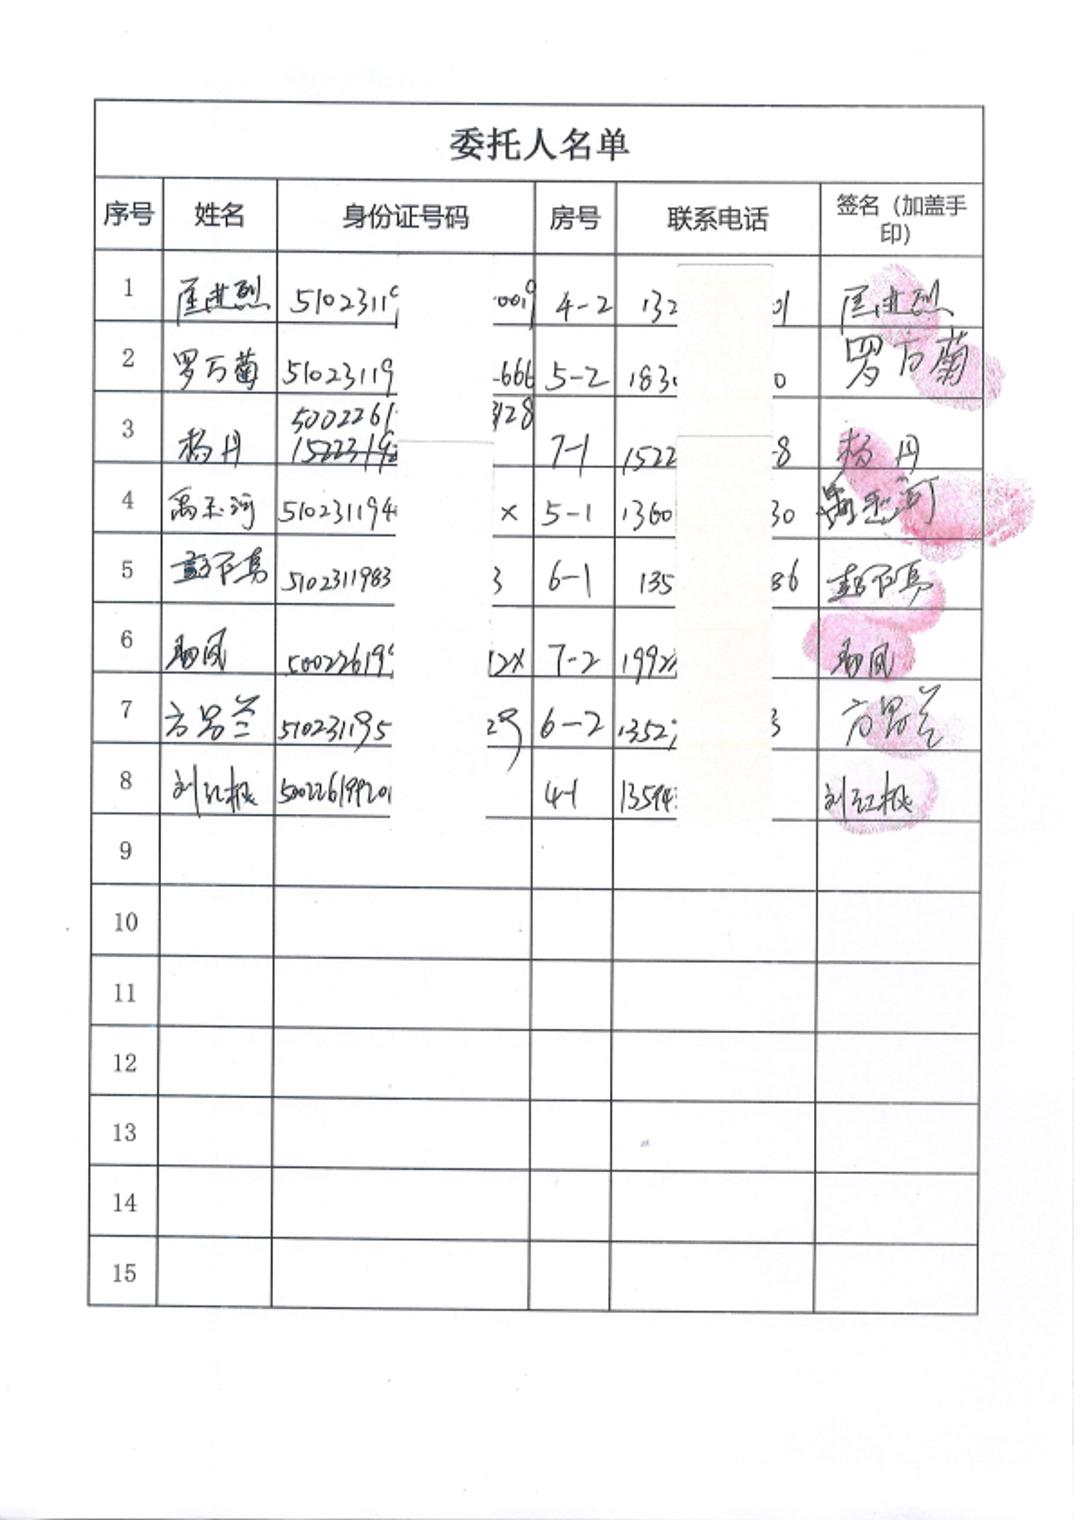 委托人名单
序号 姓名 身份证号码 房号 联系电话 签名（加盖手印）
1 匡进烈 51023119 0019 4-2 132 01 匡进烈
2 罗万菊 51023119 666 5-2 183 0 罗万菊
3 杨丹 5002261 3128 7-1 1522 8 杨丹
4 禹玉河 510231194 X 5-1 1360 30 禹玉河
5 5102311983 3 6-1 135 86
6 50022619 12X 7-2 199
7 方昌兰 510231195 29 6-2 1352 3 方昌兰
8 刘红梅 50022619920 4-1 1359 刘红梅
9
10
11
12
13
14
15